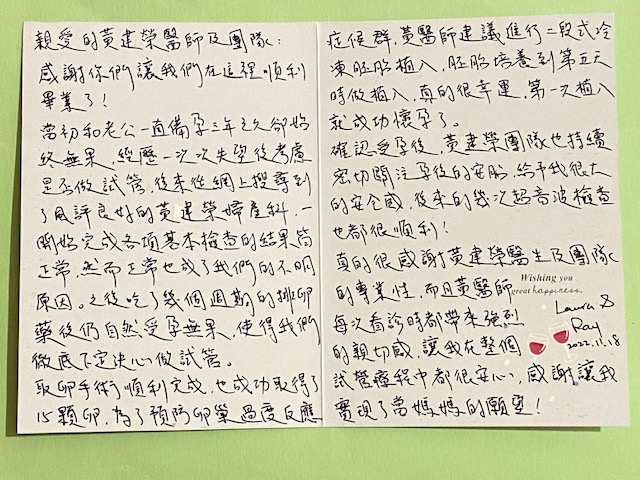 親愛的黃建榮醫師及團隊：
感謝你們讓我們在這裡順利
畢業了！
當初和老公一直備孕三年之久卻始
終無果，經歷一次次失望後考慮
是否做試管，後來從網上搜尋到
了風評良好的黃建榮婦產科，一
開始完成各項基本檢查的結果皆
正常，然而正常也成了我們的不明
原因。之後吃了幾個週期的排卵
藥後仍自然受孕無果，使得我們
徹底下定決心做試管。
取卵手術順利完成，也成功取得了
15顆卵，為了預防卵巢過度反應
症候群，黃醫師建議進行二段式冷
凍胚胎植入，胚胎培養到第五天
時做植入，真的很幸運，第一次植入
就成功懷孕了。
確認受孕後，黃建榮團隊也持續
密切關注孕後的安胎，給予我很大
的安全感，後來的幾次超音波檢查
也都很順利！
真的很感謝黃建榮醫生及團隊
的專業性，而且黃醫師
每次看診時都帶來強烈
的親切感，讓我在整個
試管療程中都很安心，感謝讓我
實現了當媽媽的願望！
Wishing you
great happiness.
Laura &
Ray
2022.11.18